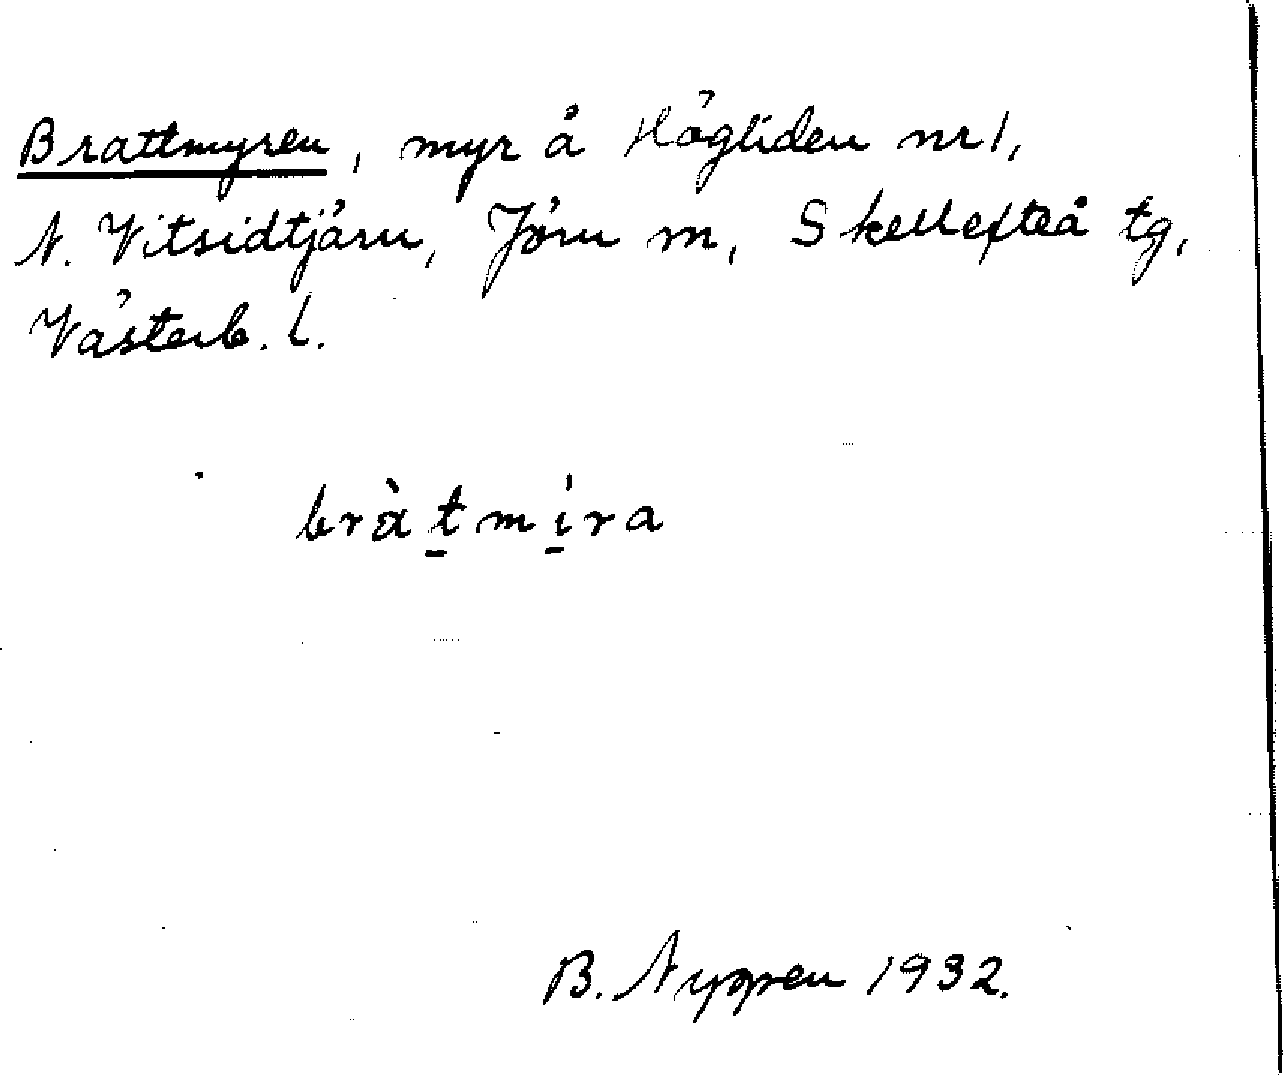 Brattmyren, myr å Högliden nr 1,
N. Vitsidtjärn, Jörn sn, Skellefteå tg,
Västerb. l.
bràt̲mi̲̍ra
B. Nygren 1932.